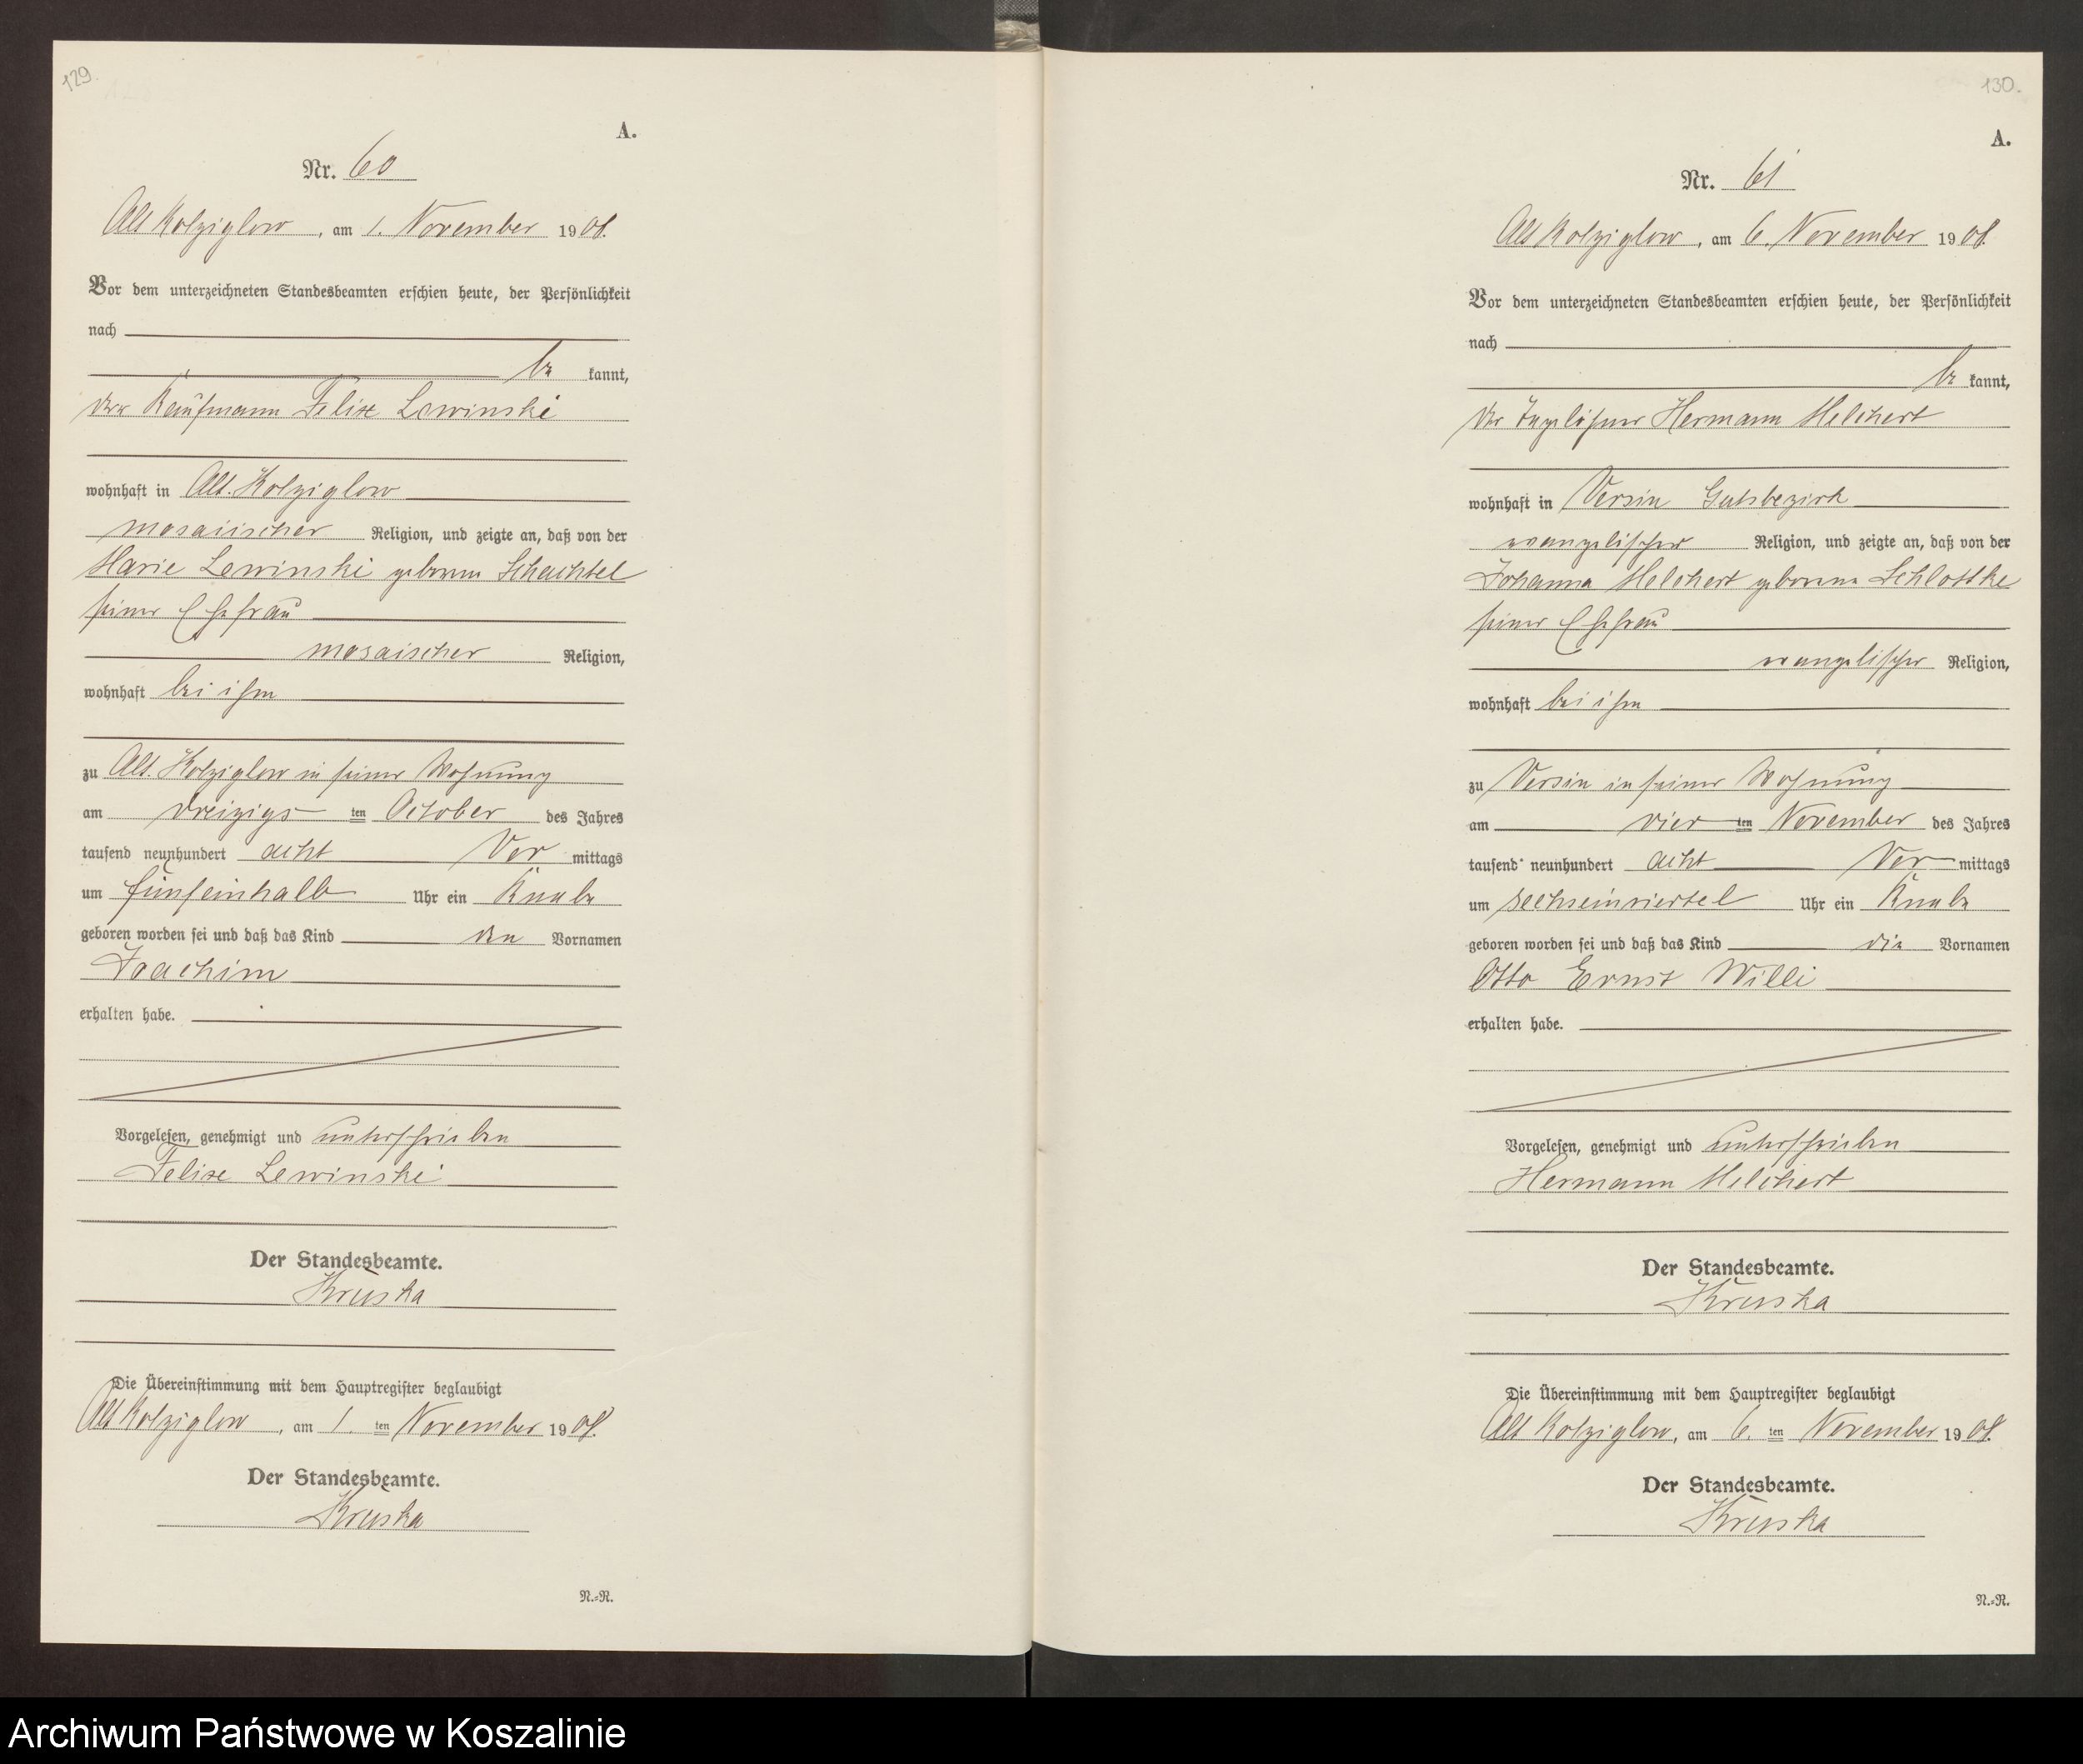 129.
A.
Nr. 60
Alt Kolziglow, am 1. November 1908.
Vor dem unterzeichneten Standesbeamten erschien heute, der Persönlichkeit
nach
be kannt,
der Kaufmann Felix Lewinski
wohnhaft in Alt. Kolziglow
mosaiischer Religion, und zeigte an, daß von der
Marie Lewinski geborenen Schachtel
seiner Ehefrau
mosaischer Religion,
wohnhaft bei ihm
zu Alt. Kolziglow in seiner Wohnung
am dreizigs ten October des Jahres
tausend neunhundert acht Vor mittags
um fünfeinhalb Uhr ein Knabe
geboren worden sei und daß das Kind den Vornamen
Joachim
erhalten habe.
Vorgelesen, genehmigt und unterschrieben
Felix Lewinski
Der Standesbeamte.
Kruska
Die Übereinstimmung mit dem Hauptregister beglaubigt
Alt Kolziglow, am 1. ten November 1908.
Der Standesbeamte.
Kruska
N.=R.
130.
A.
Nr. 61
Alt Kolziglow, am 6. November 1908.
Vor dem unterzeichneten Standesbeamten erschien heute, der Persönlichkeit
nach
be kannt,
der Tagelöhner Hermann Melchert
wohnhaft in Versin Gutsbezirk
evangelischer Religion, und zeigte an, daß von der
Johanna Melchert geborene Schlottke
seiner Ehefrau
evangelischer Religion,
wohnhaft bei ihm
zu Versin in seiner Wohnung
am vier ten November des Jahres
tausend neunhundert acht Vor mittags
um sechseinviertel Uhr ein Knabe
geboren worden sei und daß das Kind die Vornamen
Otto Ernst Willi
erhalten habe.
Vorgelesen, genehmigt und unterschrieben
Hermann Melchert
Der Standesbeamte.
Kruska
Die Übereinstimmung mit dem Hauptregister beglaubigt
Alt Kolziglow, am 6. ten November 1908.
Der Standesbeamte.
Kruska
N.=R.
Archiwum Państwowe w Koszalinie